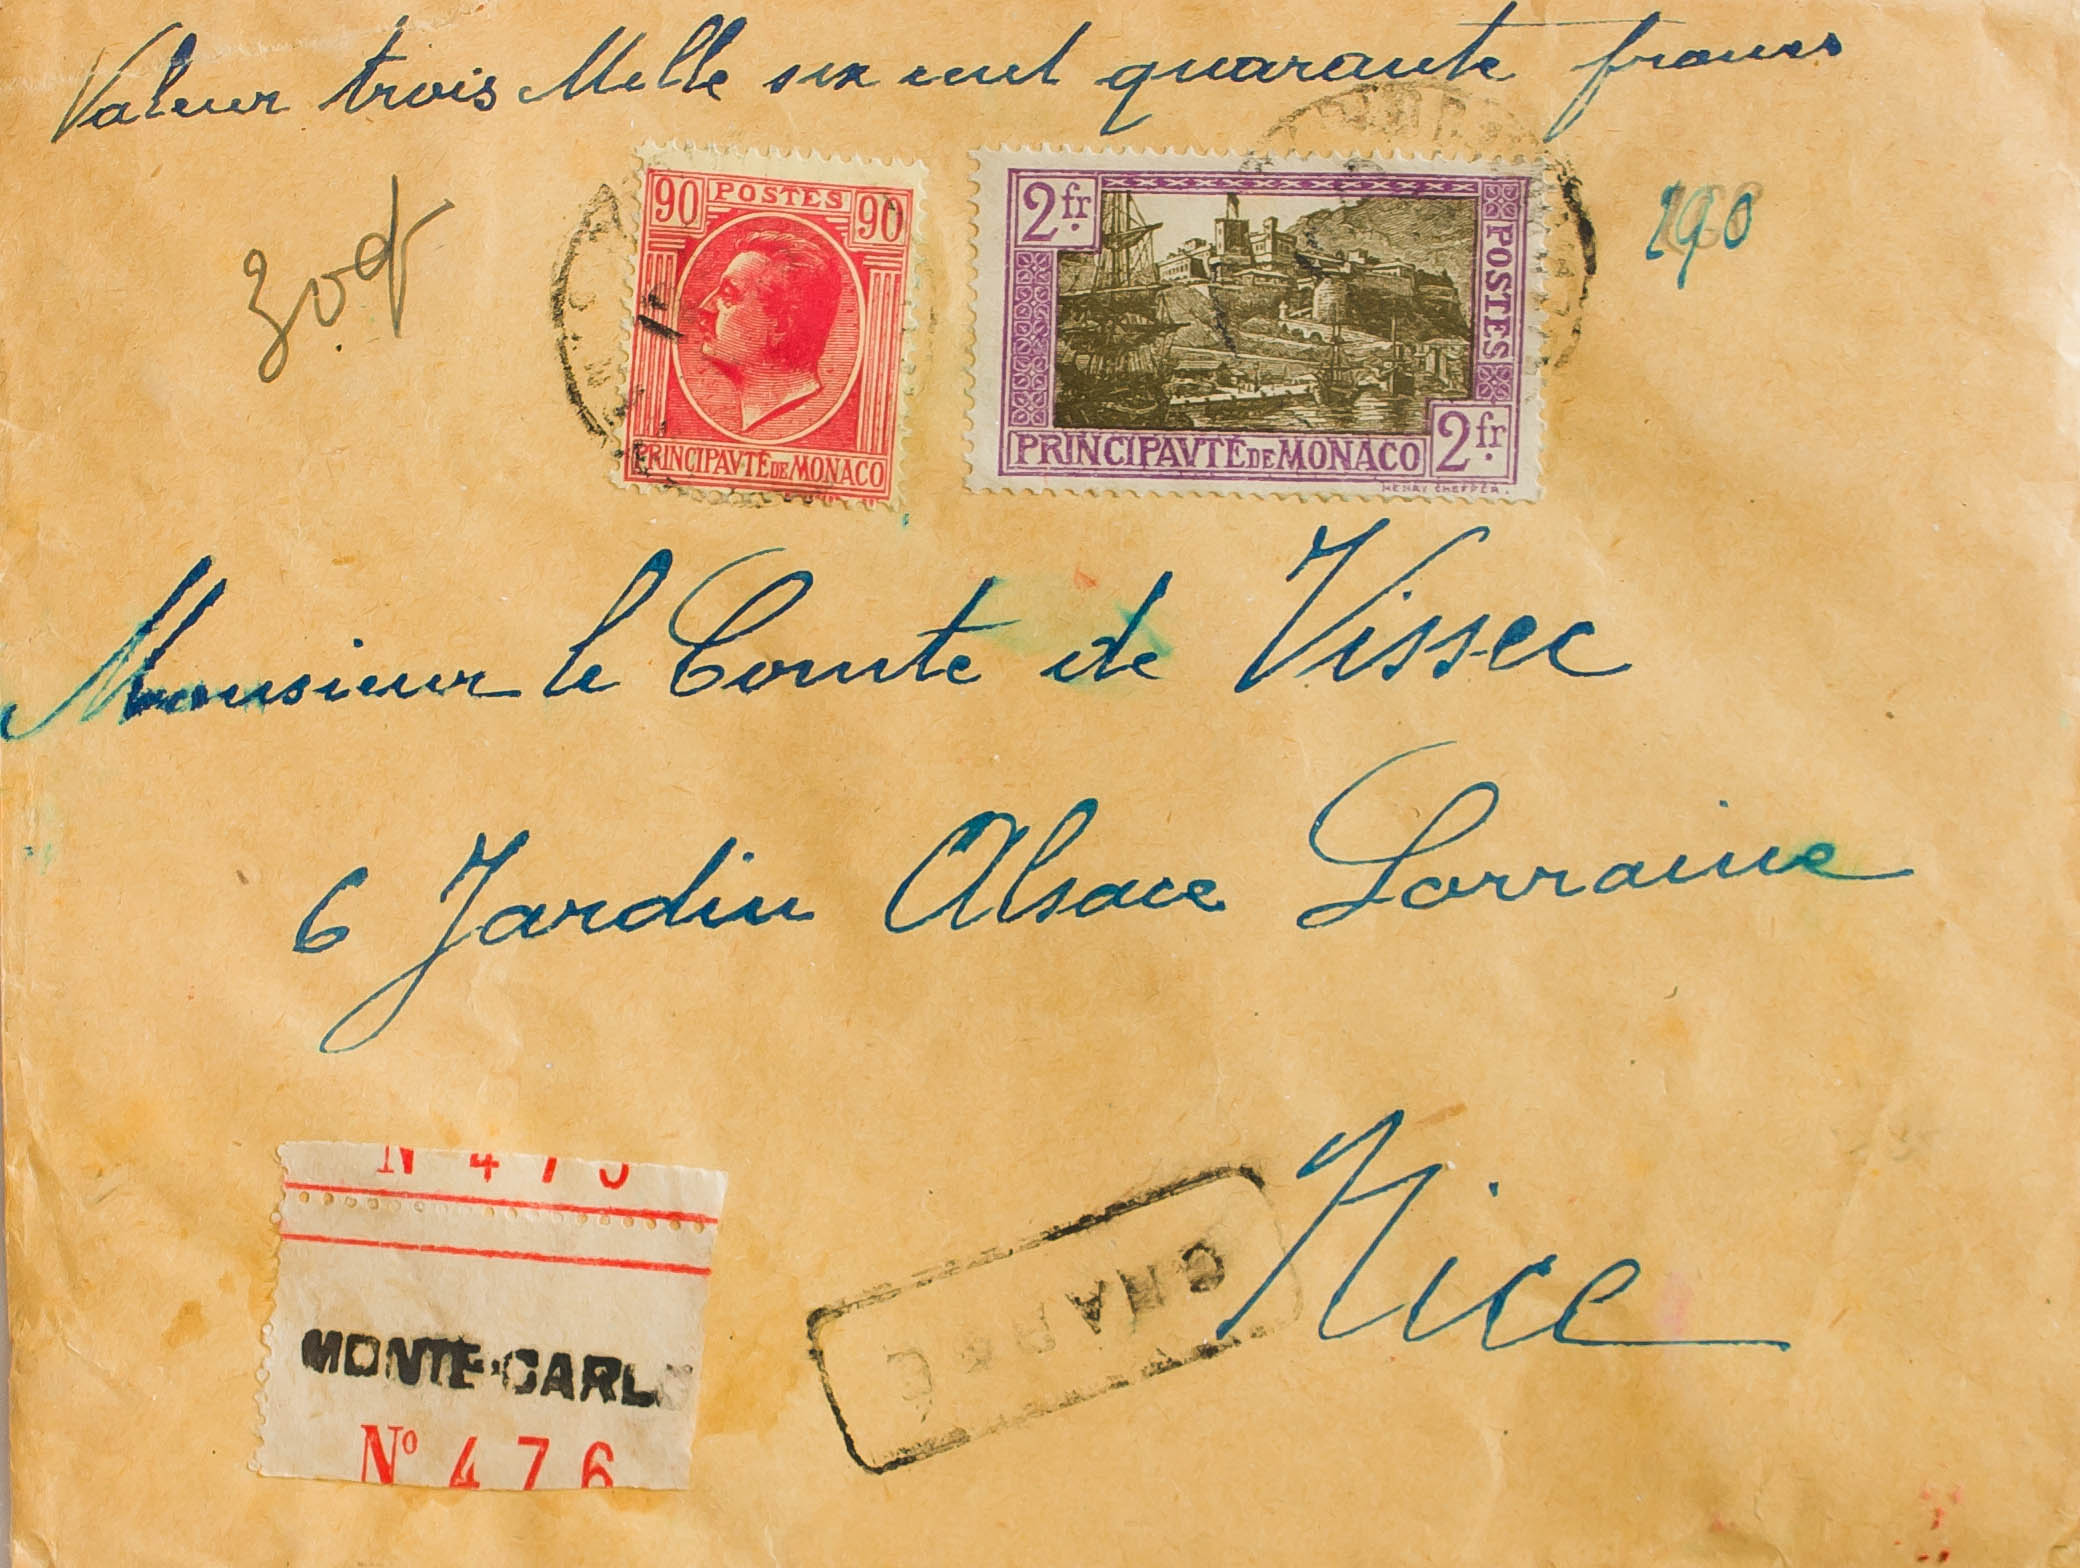 Valeur trois Mille six cent quarante francs
30 g
90 POSTES 90
PRINCIPAVTÉ DE MONACO
2fr. POSTES
PRINCIPAVTÉ DE MONACO 2fr.
HENRY CHEFFER.
290
Monsieur le Comte de Vissec
6 Jardin Alsace Lorraine
Nice
MONTE-CARL
Nº 476
CHARGÉ